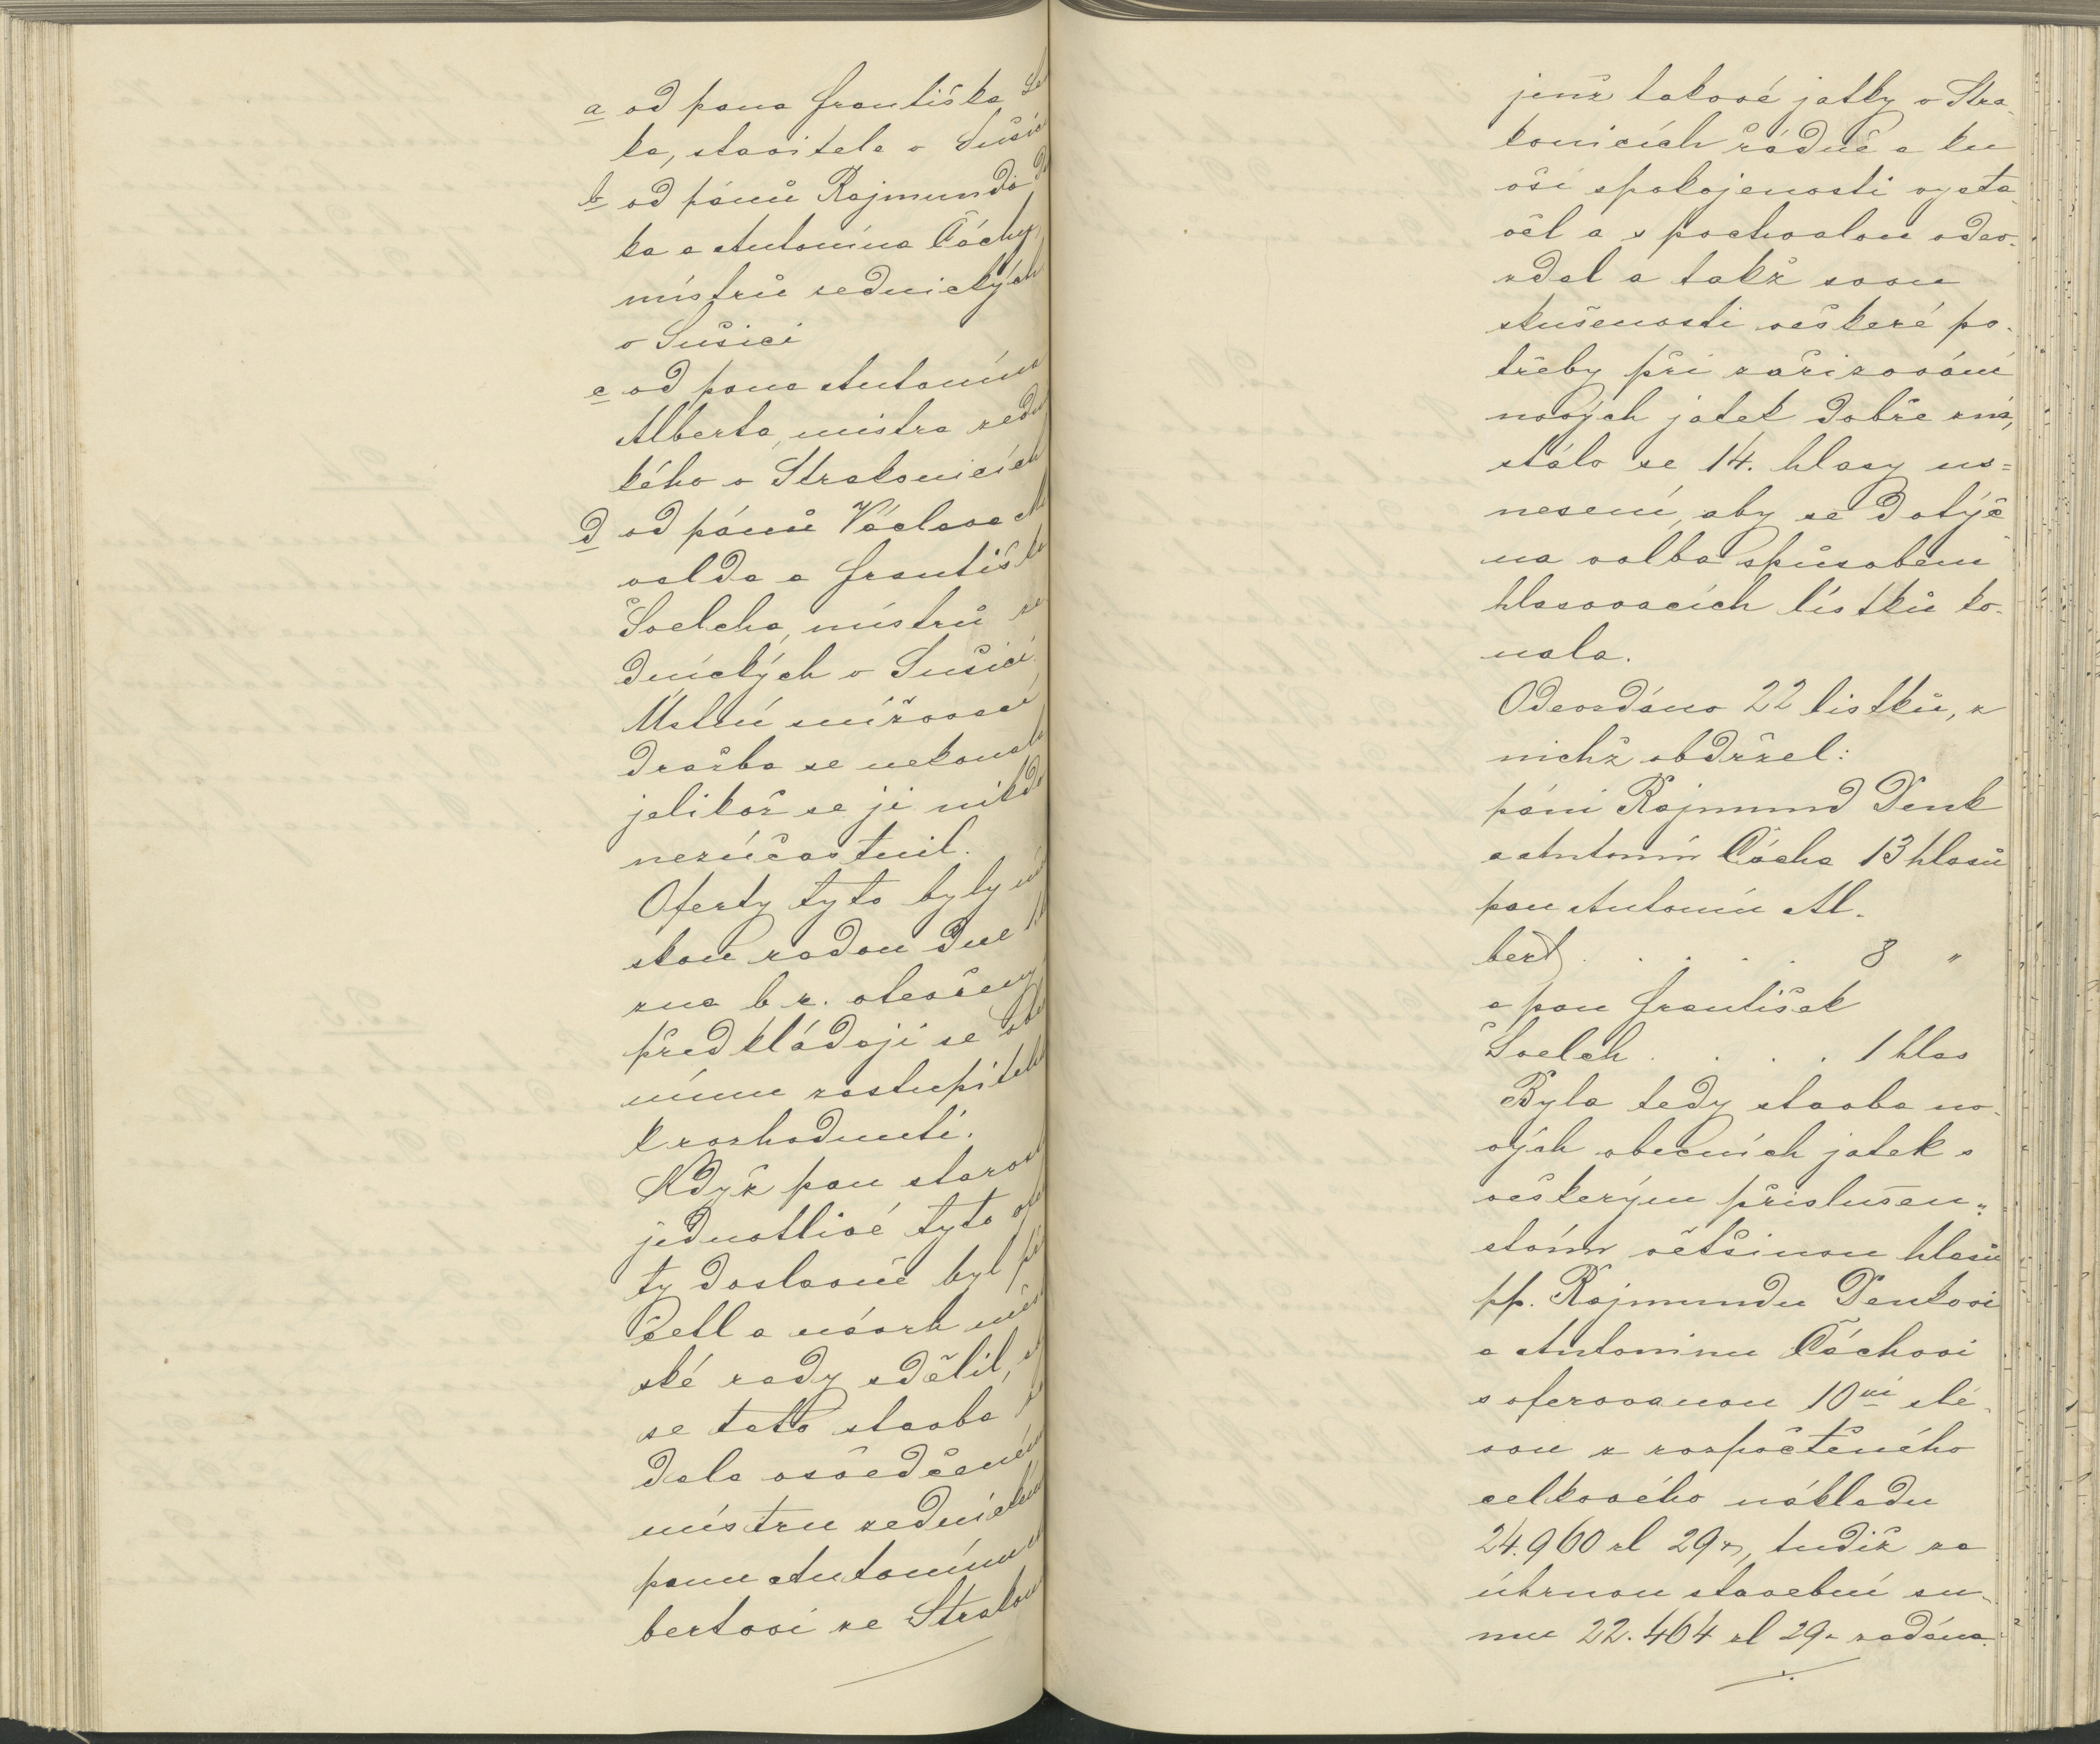 a od pana Františka
ka, stavitele v Sušici
b od pánů Rajmunda
ka a Antonína Čáchy
místrů zednických
v Sušici
c od pana Antonína
Alberta, mistra zed
kého v Strakonicích
d od pánů Václava
valda a Františka
Švelcha, místrů ze
dnických v Sušici.
Ústní snižovací
dražba se nekonala
jelikož se jí nikdo
nezúčastnil.
Oferty tyto byly
skou radou dne
zna b. r. otevřeny
předkládají se obe
nímu zastupitel
k rozhodnutí.
Když pan staros
jednotlivé tyto ofe
ty doslovně byl př
četl a návrh měs
ské rady sdělil,
se tato stavba
dala osvědčeném
místru zednickém
panu Antonínu
bertovi ze Strakon
jenž takové jatky v Stra-
konicích řádně a ku
vší spokojenosti vysta-
věl a s pochvalou odev-
zdal a takž svou
skušenosti veškeré po-
třeby při zařizování
nových jatek dobře zná,
stálo se 14. hlasy us=
nesení, aby se dotýč-
na volba spůsobem
hlasovacích lístků ko-
nala.
Odevzdáno 22 lístků, z
nichž obdržel:
páni Rajmund Denk
a Antonín Čácha 13 hlasů
pan Antonín Al-
bert . . . . . 8 "
a pan František
Švelch . . . . 1 hlas
Byla tedy stavba no-
vých obecních jatek s
veškerým příslušen-
stvím většinou hlasů
pp. Rajmundu Denkovi
a Antonínu Čáchovi
s oferovanou 10ní slé-
vou z rozpočtěného
celkového nákladu
24.960 zl 29 kr, tudíž za
úhrnou stavební su-
mu 22.464 zl 29 kr zadána.
./.